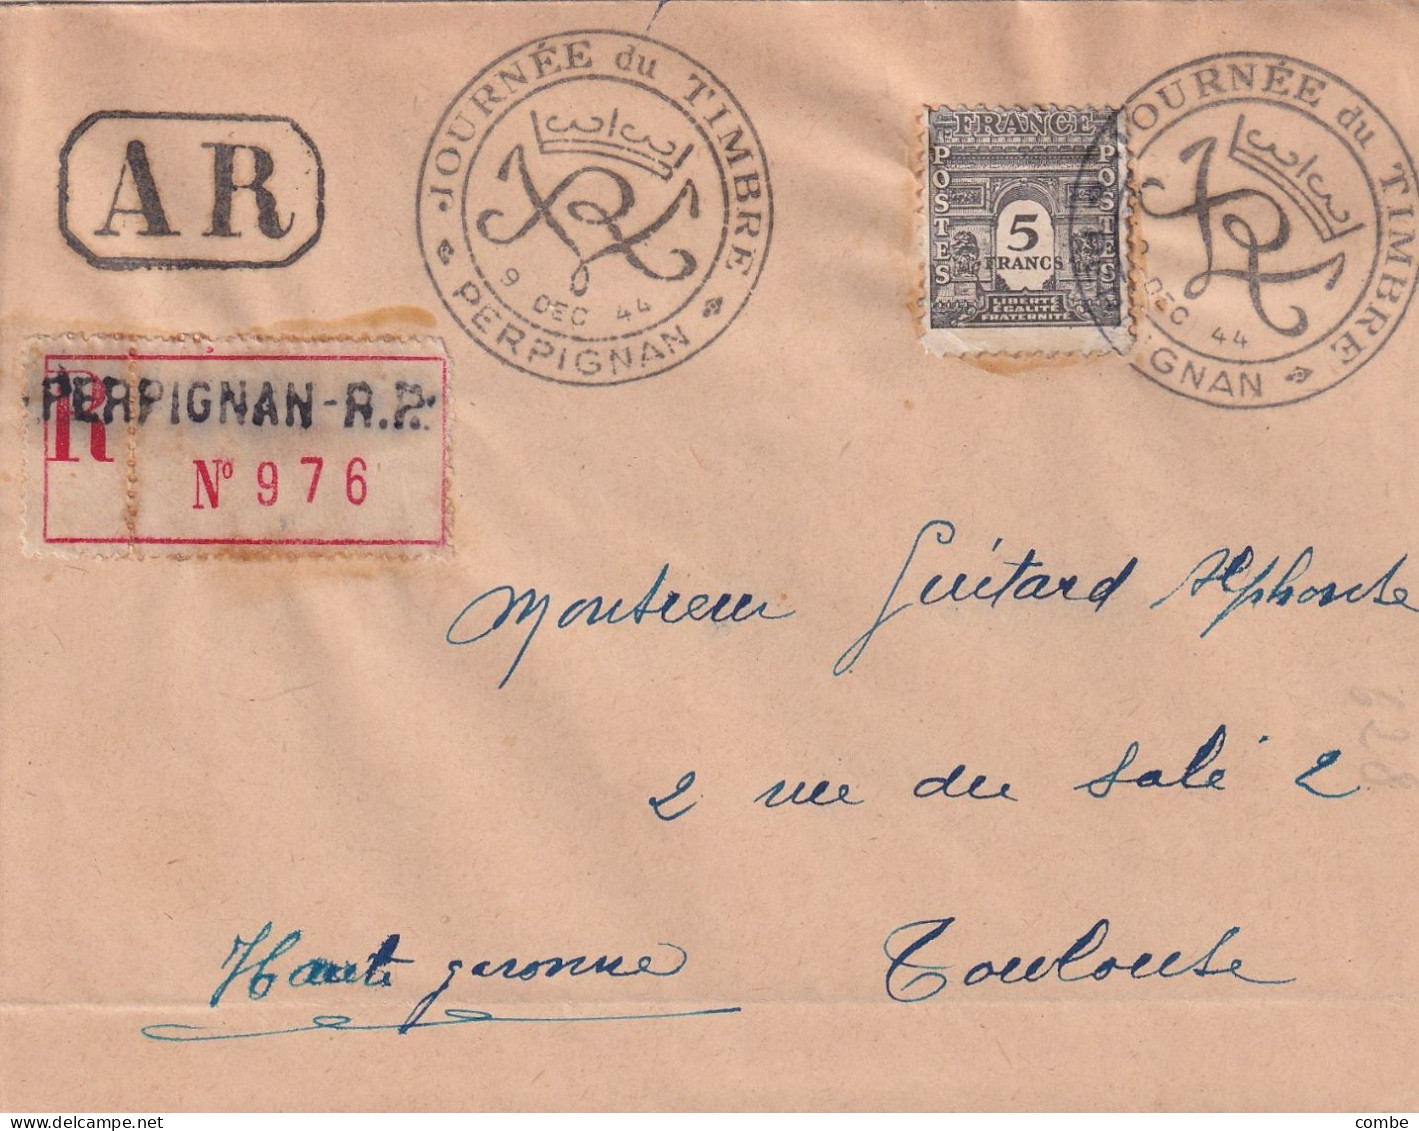 JOURNÉE du TIMBRE
9 DEC 44
PERPIGNAN
JOURNÉE du TIMBRE
DEC 44
IGNAN
AR
FRANCE
POSTES
POSTES
5
FRANCS
LIBERTÉ
ÉGALITÉ
FRATERNITÉ
R
PERPIGNAN-R.P.
N° 976
Monsieur Guitard Alphonse
2 rue du Salé 2
Haute garonne Toulouse
628
combe